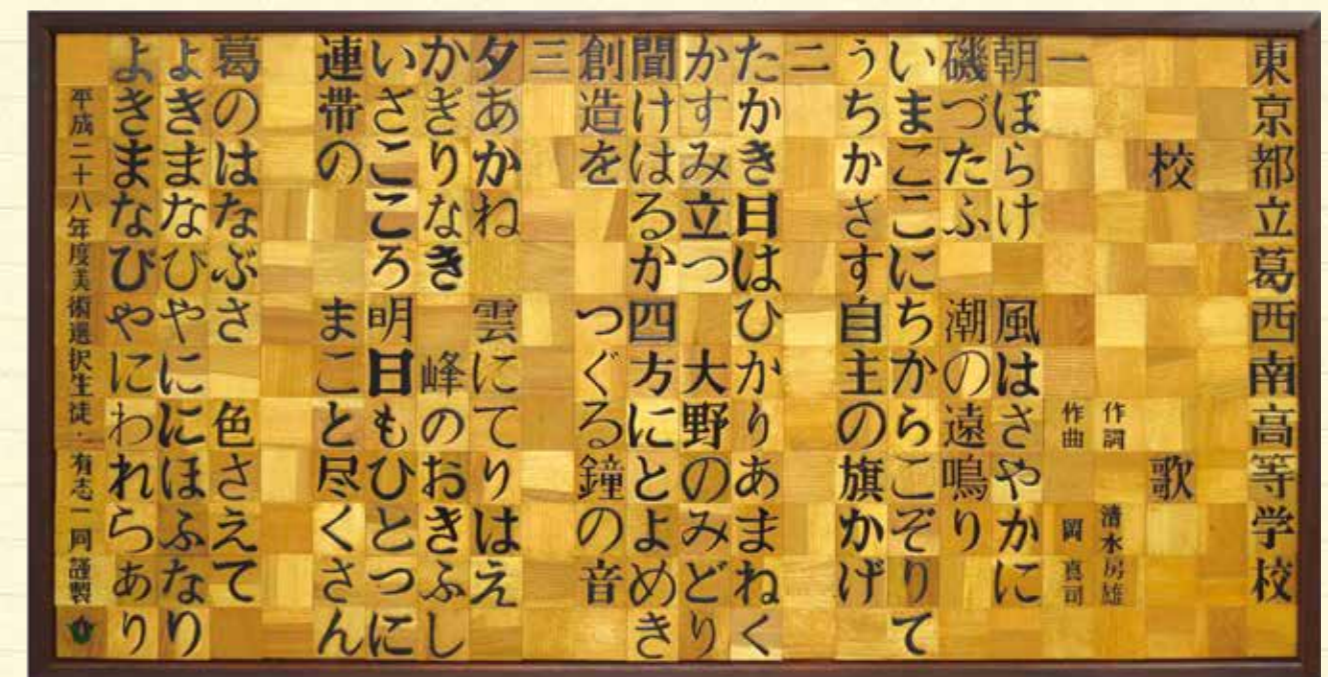 東京都立葛西南高等学校
校歌
作詞 清水房雄
作曲 岡真司
一
朝ぼらけ 風はさやかに
磯づたふ 潮の遠鳴り
いまここにちからこぞりて
うちかざす自主の旗かげ
二
たかき日はひかりあまねく
かすみ立つ 大野のみどり
聞けはるか四方にとよめき
創造を つぐる鐘の音
三
夕あかね 雲にてりはえ
かぎりなき 峰のおきふし
いざこころ明日もひとつに
連帯の まこと尽くさん
葛のはなぶさ 色さえて
よきまなびやににほふなり
よきまなびやにわれらあり
平成二十八年度美術選択生徒・有志一同謹製